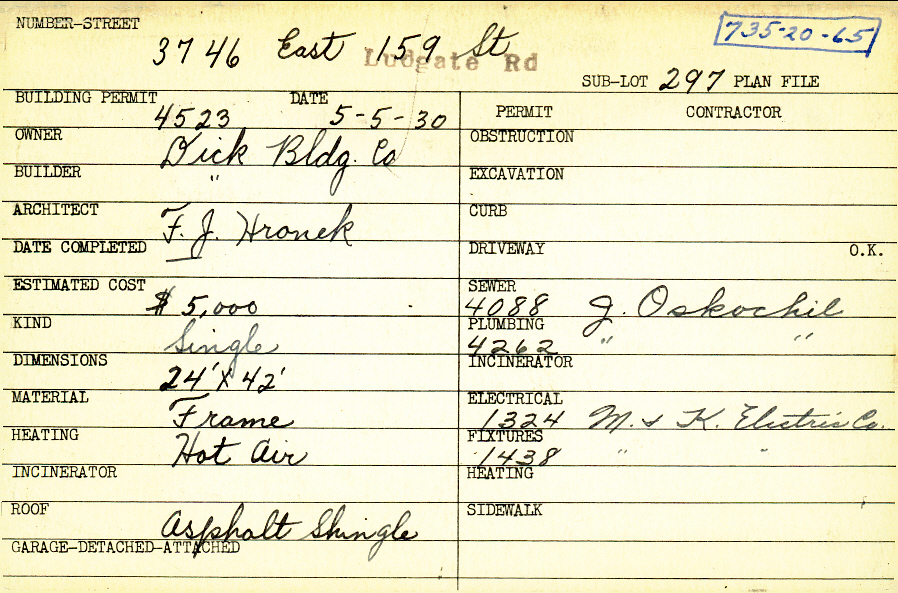 NUMBER-STREET
3746 East 159 St
Ludgate Rd
735-20-65
SUB-LOT 297 PLAN FILE
BUILDING PERMIT DATE
4523 5-5-30
PERMIT CONTRACTOR
OWNER
Dick Bldg. Co
OBSTRUCTION
BUILDER
"
EXCAVATION
ARCHITECT
F. J. Hronek
CURB
DATE COMPLETED
DRIVEWAY O.K.
ESTIMATED COST
$ 5,000
SEWER
4088 J. Oskochil
KIND
Single
PLUMBING
4262 " "
DIMENSIONS
24' X 42'
INCINERATOR
MATERIAL
Frame
ELECTRICAL
1324 M. & K. Electric Co.
HEATING
Hot Air
FIXTURES
1438 " "
INCINERATOR
HEATING
ROOF
Asphalt Shingle
SIDEWALK
GARAGE-DETACHED-ATTACHED